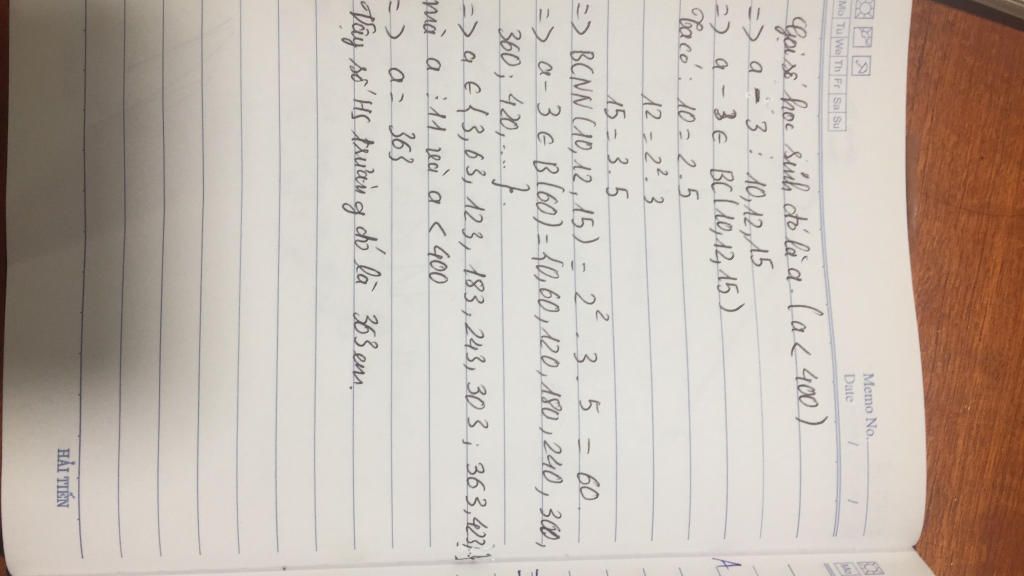 Memo No.
Date / /
Mo Tu We Th Fr Sa Su
Gọi số học sinh đó là a. (a < 400)
=> a - 3 ⋮ 10, 12, 15
=> a - 3 ∈ BC(10, 12, 15)
Ta có: 10 = 2 . 5
12 = 2² . 3
15 = 3 . 5
=> BCNN(10, 12, 15) = 2² . 3 . 5 = 60.
=> a - 3 ∈ B(60) = {0, 60, 120, 180, 240, 300,
360; 420, ....}.
=> a ∈ {3, 63, 123, 183, 243, 303; 363, 423;..}
mà a ⋮ 11 và a < 400
=> a = 363
Vậy số HS trường đó là 363 em.
HẢI TIẾN
A